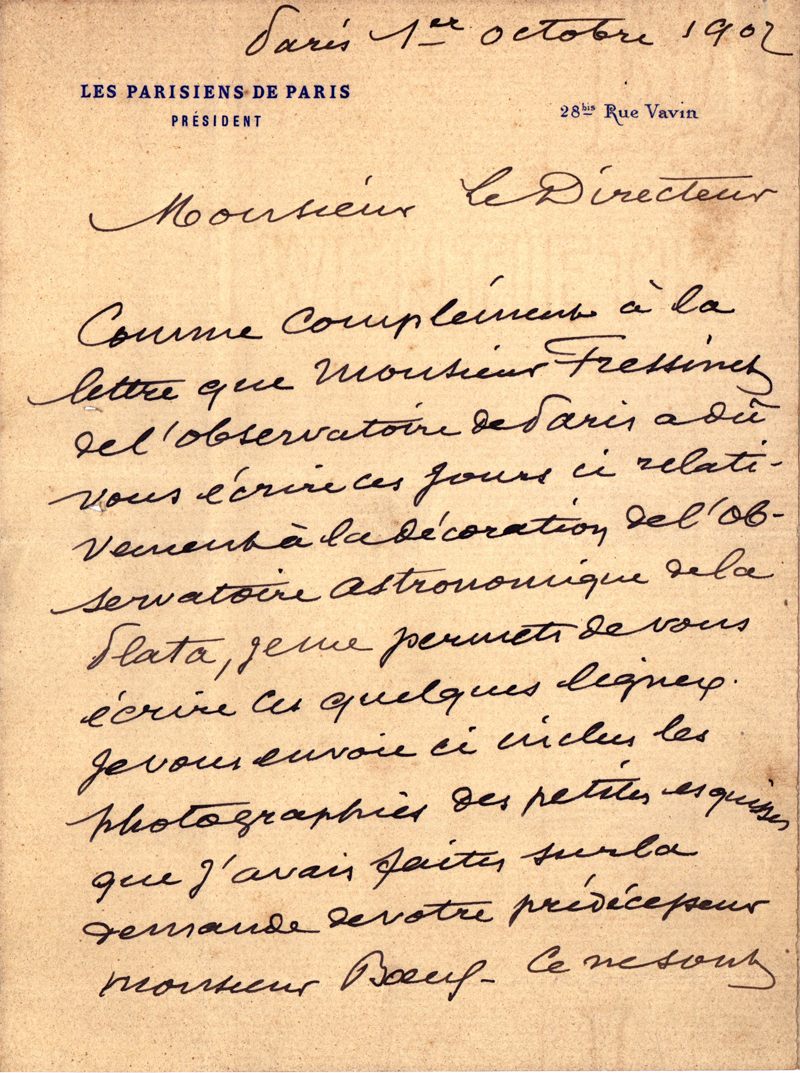 Paris 1er octobre 1902
LES PARISIENS DE PARIS
PRÉSIDENT
28bis Rue Vavin
Monsieur Le Directeur
Comme complément à la
lettre que Monsieur Fressinet
de l'observatoire de Paris a dû
vous écrire ces jours ci relati-
vement à la décoration de l'ob-
servatoire astronomique de la
Plata, je me permets de vous
écrire ces quelques lignes.
Je vous envoie ci inclus les
photographies des petites esquisses
que j'avais faites sur la
demande de votre prédécesseur
Monsieur Bœuf - Ce ne sont